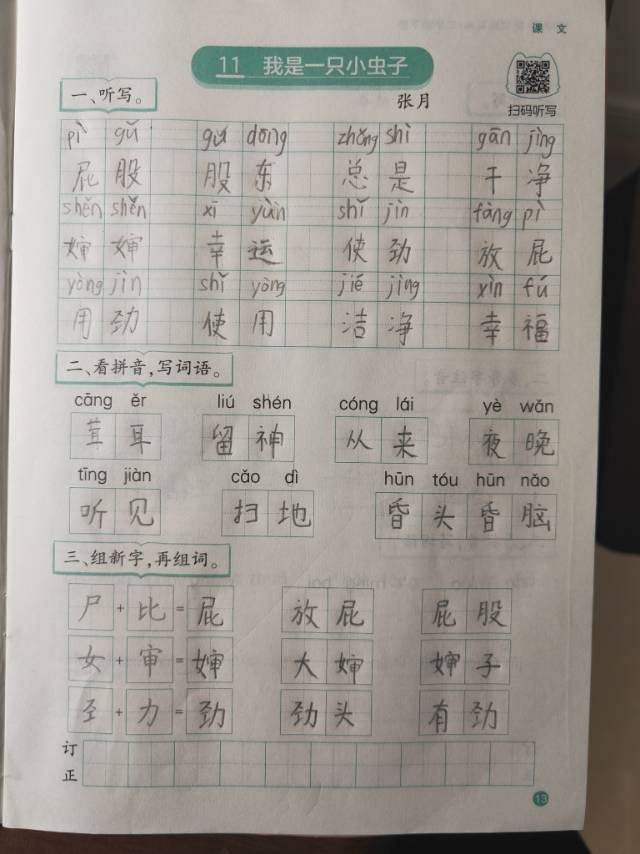 课 文
11 我是一只小虫子
一、听写。
张月
扫码听写
pì gǔ gǔ dōng zhǒng shì gān jìng
屁 股 股 东 总 是 干 净
shěn shěn xī yùn shǐ jìn fàng pì
婶 婶 幸 运 使 劲 放 屁
yòng jìn shǐ yòng jié jìng xìn fú
用 劲 使 用 洁 净 幸 福
二、看拼音,写词语。
cāng ěr liú shén cóng lái yè wǎn
茸 耳 留 神 从 来 夜 晚
tīng jiàn cǎo dì hūn tóu hūn nǎo
听 见 扫 地 昏 头 昏 脑
三、组新字,再组词。
尸 + 比 = 屁 放 屁 屁 股
女 + 审 = 婶 大 婶 婶 子
圣 + 力 = 劲 劲 头 有 劲
订
正
13